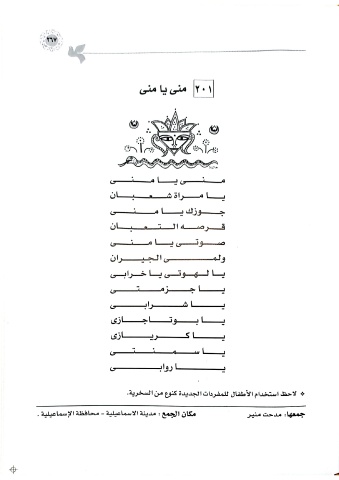 ٢٦٧
٢٠١ منى يا منى
منى يا منى
يا مراة شعبان
جوزك يا منى
قرصه التعبان
صوتى يا منى
ولمى الجيران
يا لهوتى يا خرابى
يا جزمتى
يا شرابى
يا بوتاجازى
يا كريازى
يا سمنتى
يا روابى
* لاحظ استخدام الأطفال للمفردات الجديدة كنوع من السخرية.
جمعها: مدحت منير مكان الجمع: مدينة الاسماعيلية - محافظة الإسماعيلية.